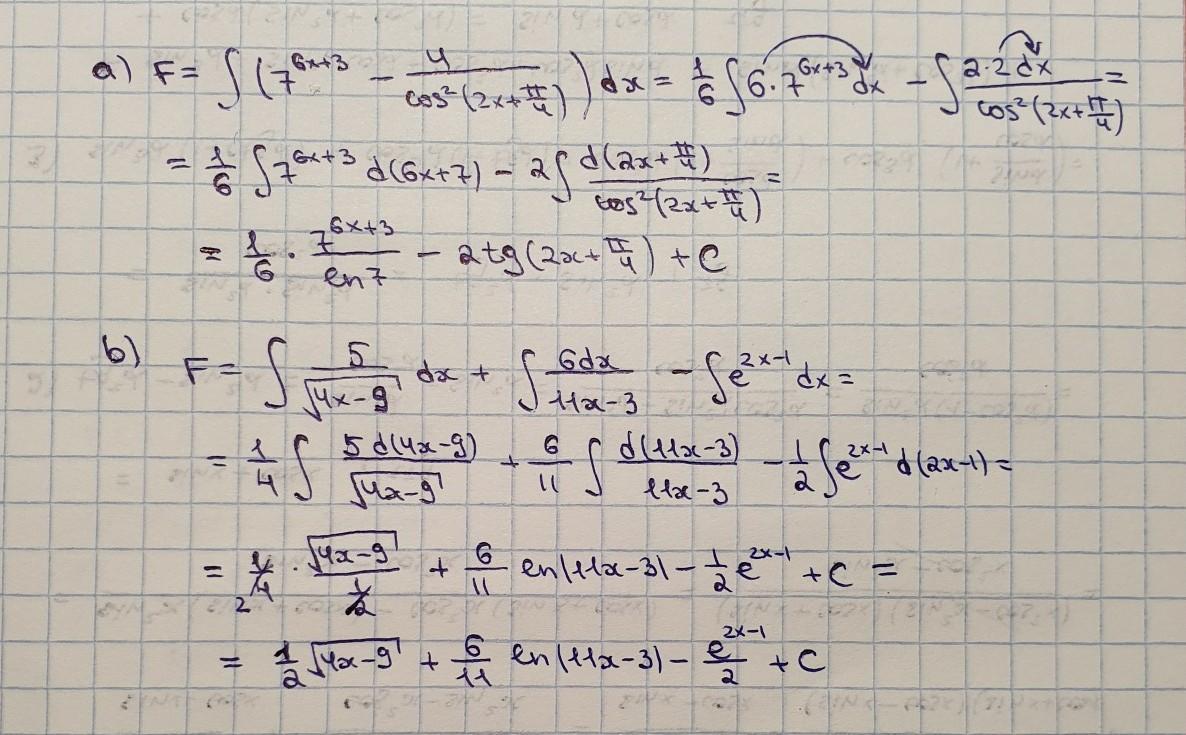 a) F = ∫ (7^{6x+3} − 4/cos²(2x+π/4)) dx = 1/6 ∫ 6·7^{6x+3} dx − ∫ 2·2 dx/cos²(2x+π/4) =
= 1/6 ∫ 7^{6x+3} d(6x+7) − 2∫ d(2x+π/4)/cos²(2x+π/4) =
= 1/6 · 7^{6x+3}/ln7 − 2tg(2x+π/4) + C
b) F = ∫ 5/√(4x−9) dx + ∫ 6dx/(11x−3) − ∫ e^{2x−1} dx =
= 1/4 ∫ 5 d(4x−9)/√(4x−9) + 6/11 ∫ d(11x−3)/(11x−3) − 1/2 ∫ e^{2x−1} d(2x−1) =
= 1/4 2 · √(4x−9)/(1/2) + 6/11 ln|11x−3| − 1/2 e^{2x−1} + C =
= 1/2 √(4x−9) + 6/11 ln|11x−3| − e^{2x−1}/2 + C